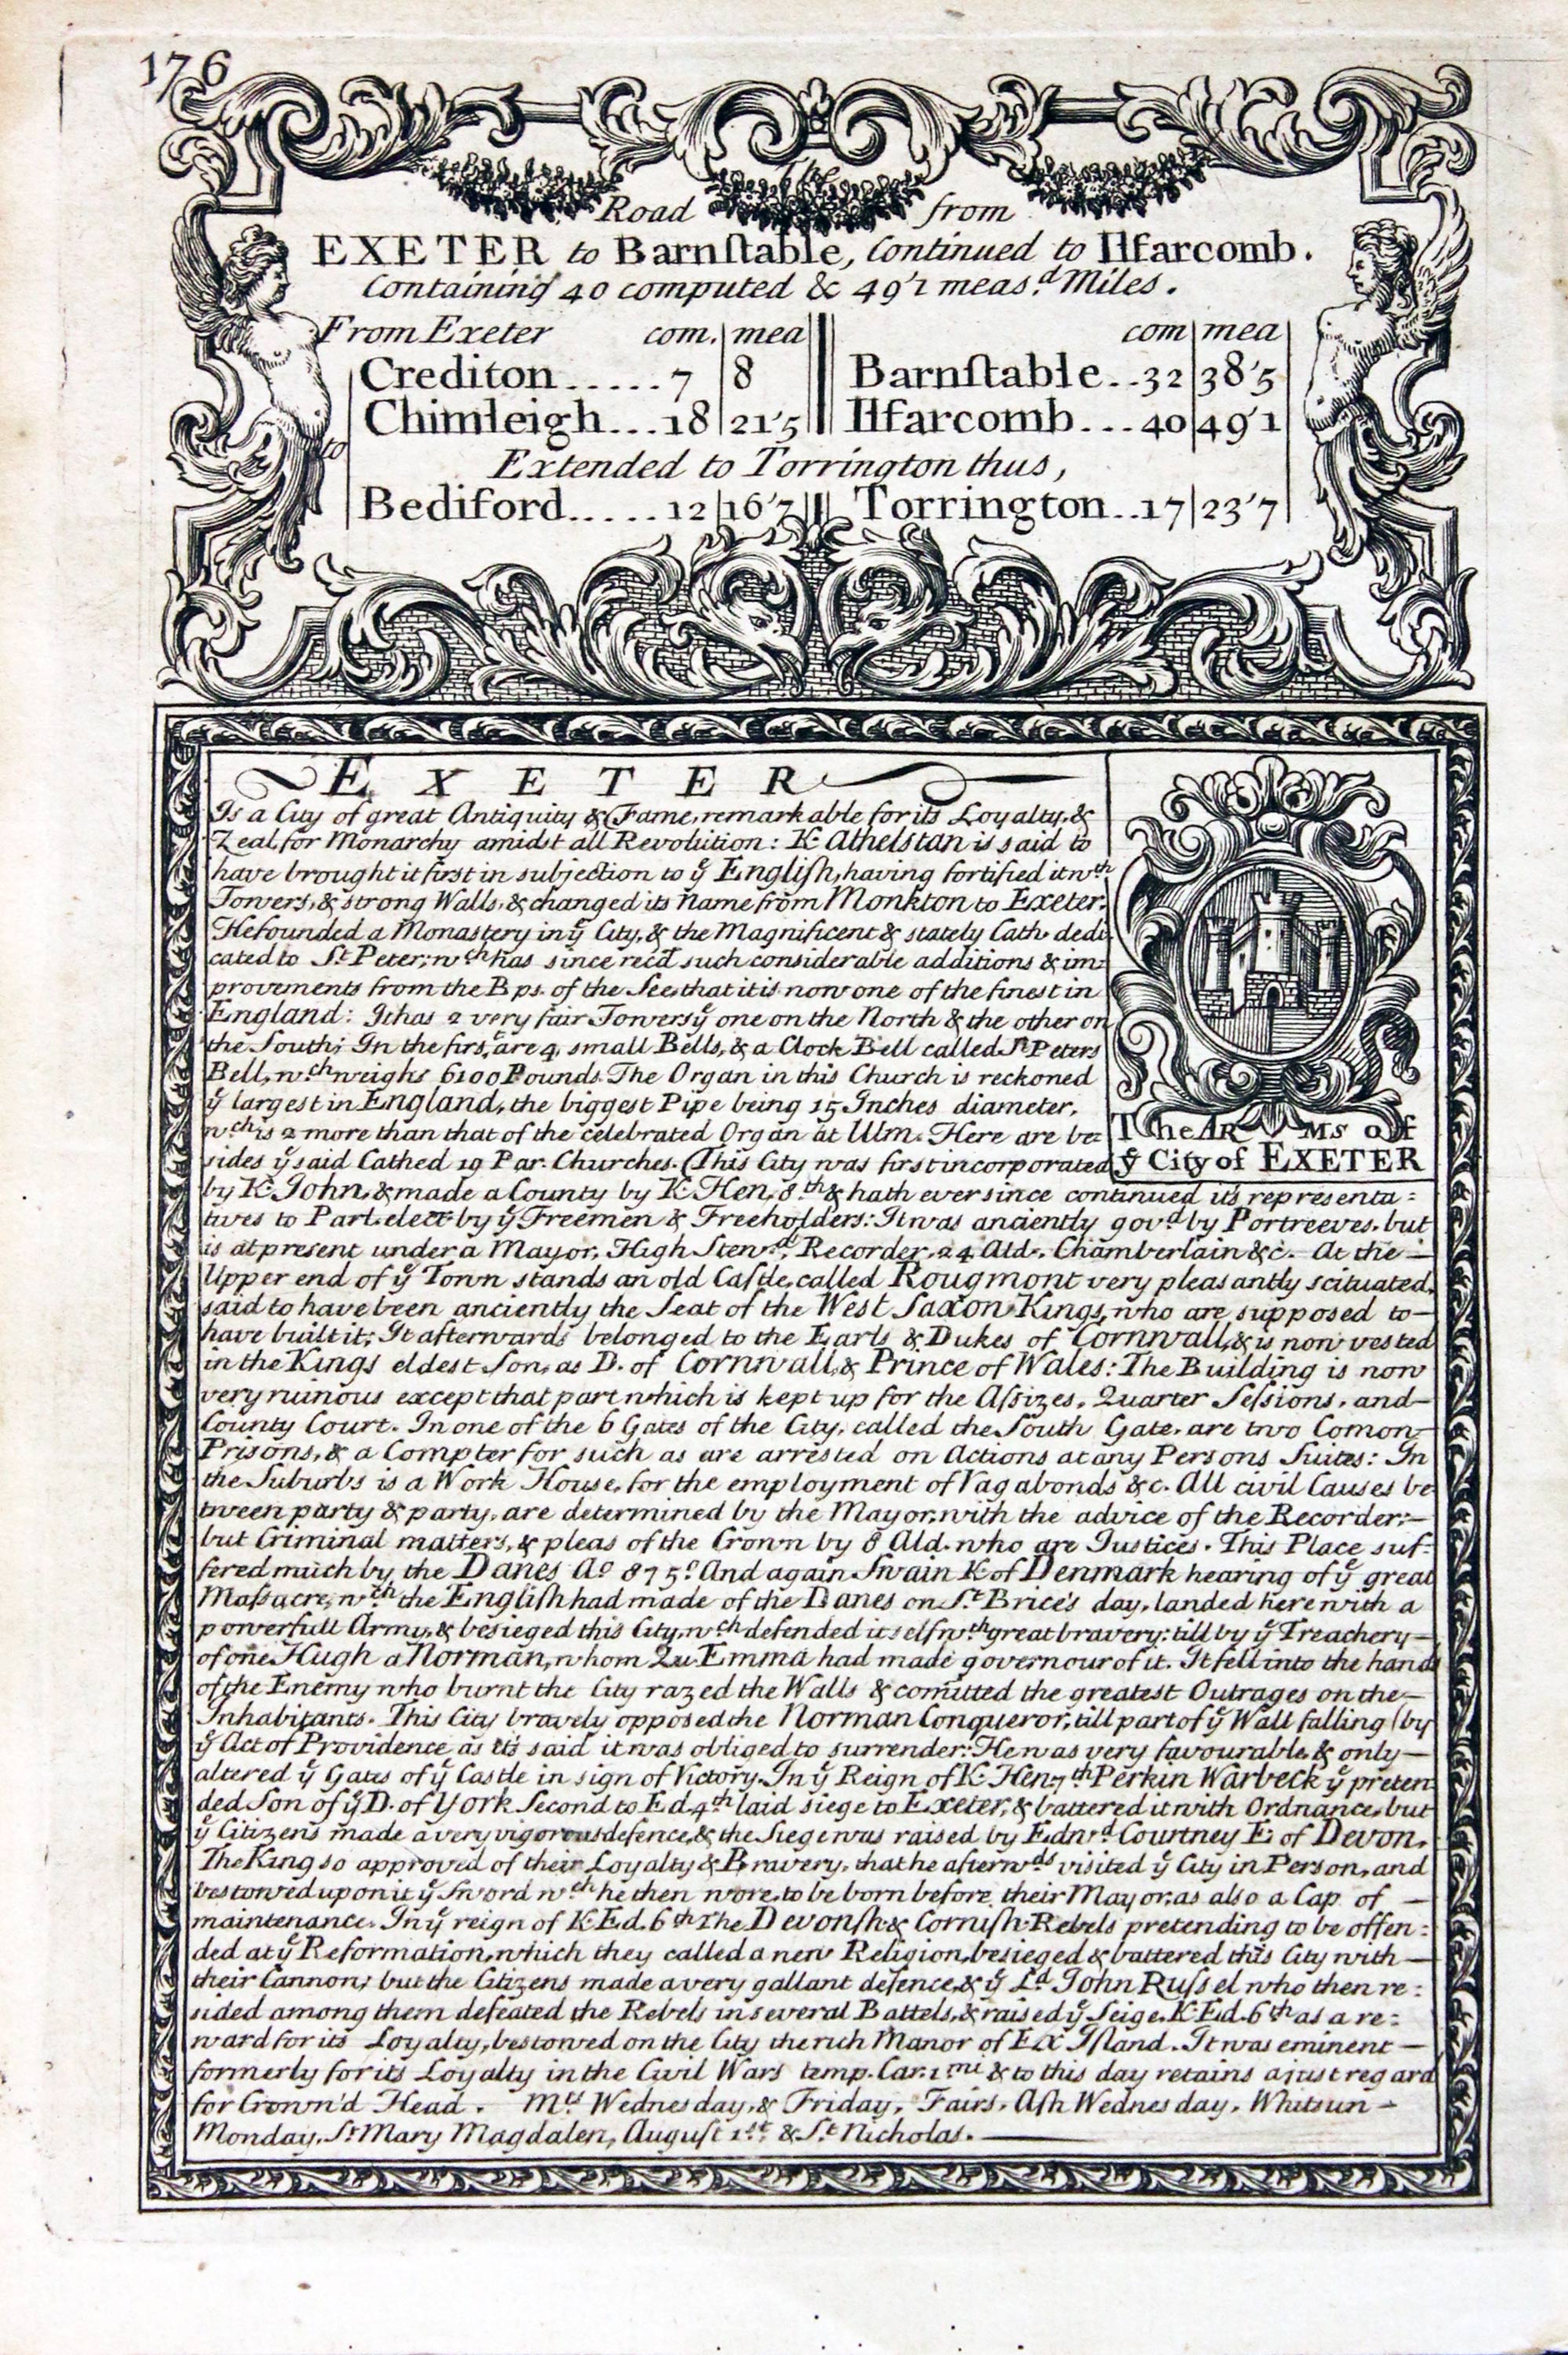 176
The
Road from
EXETER to Barnſtable, Continued to Ilfarcomb.
Containing 40 computed & 49'1 meas.d Miles.
From Exeter com. mea com mea
Crediton.....7 8 Barnſtable..32 38'5
to Chimleigh...18 21'5 Ilfarcomb...40 49'1
Extended to Torrington thus,
Bediford.....12 16'7 Torrington..17 23'7
EXETER
Is a City of great Antiquity & Fame, remarkable for its Loyalty, &
Zeal, for Monarchy amidst all Revolution: K. Athelstan is said to
have brought it first in subjection to ẙ Engliſh, having fortified it wth
Towers, & strong Walls, & changed its Name from Monkton to Exeter.
He founded a Monastery in ẙ City, & the Magnificent & stately Cath. dedi-
cated to St. Peter; wch has since rec'd such considerable additions & im-
provements from the Bps. of the See, that it is now one of the finest in
England: It has 2 very fair Towers ẙ one on the North & the other on
the South; In the firs,t are 4, small Bells, & a Clock Bell called St. Peters
Bell, wch weighs 6100 Pounds. The Organ in this Church is reckoned
ẙ largest in England, the biggest Pipe being 15 Inches diameter,
wch is 2 more than that of the celebrated Organ at Ulm. Here are be=
sides ẙ said Cathed. 19 Par. Churches. (This City was first incorporated
The ARMS of
ẙ City of EXETER
by K. John, & made a County by K. Hen. 8.th & hath ever since continued its representa=
tives to Parl. elect by ẙ Freemen & Freeholders: It was anciently gov.d by Portreeves, but
is at present under a Mayor, High Stew.d, Recorder, 24 Ald., Chamberlain &c. At the —
Upper end of ẙ Town stands an old Caſtle, called Rougmont very pleasantly scituated,
said to have been anciently the Seat of the West Saxon Kings, who are supposed to —
have built it; It afterwards belonged to the Earls & Dukes of Cornwall, & is now vested
in the Kings eldest Son, as D. of Cornwall, & Prince of Wales: The Building is now
very ruinous except that part which is kept up for the Aſsizes, Quarter Seſsions, and —
County Court. In one of the 6 Gates of the City, called the South Gate, are two Comon —
Prisons, & a Compter for such as are arrested on Actions at any Persons Suites: In
the Suburbs is a Work House, for the employment of Vagabonds &c. All civil Causes be
tween party & party, are determined by the Mayor, with the advice of the Recorder; —
but Criminal matters, & pleas of the Crown by 8 Ald. who are Justices. This Place suf=
fered much by the Danes A.o 875. And again Swain K. of Denmark hearing of ẙ great
Maſsacre, wch the Engliſh had made of the Danes on St. Brice's day, landed here with a
powerfull Army, & besieged this City, wch defended itself wth great bravery: till by ẙ Treachery —
of one Hugh a Norman, whom Qu. Emma had made governour of it. It fell into the hands
of the Enemy who burnt the City razed the Walls & comitted the greatest Outrages on the —
Inhabitants. This City bravely opposed the Norman Conqueror, till part of ẙ Wall falling (by
ẙ Act of Providence as it's said it was obliged to surrender: He was very favourable, & only —
altered ẙ Gates of ẙ Castle in sign of Victory. In ẙ Reign of K. Hen. 7th Perkin Warbeck ẙ preten
ded Son of ẙ D. of York Second to Ed. 4th laid siege to Exeter, & battered it with Ordnance, but
ẙ Citizens made a very vigorous defence, & the Siege was raised by Edw.d Courtney E. of Devon.
The King so approved of their Loyalty & Bravery, that he afterw.ds visited ẙ City in Person, and
bestowed upon it ẙ Sword wch he then wore, to be born before their Mayor, as also a Cap of —
maintenance. In ẙ reign of K. Ed. 6th The Devonſh. & Corniſh Rebels pretending to be offen=
ded at ẙ Reformation, which they called a new Religion, besieged & battered this City with —
their Cannon; but the Citizens made a very gallant defence, & ẙ Ld. John Ruſsel who then re=
sided among them defeated the Rebels in several Battels, & raised ẙ Seige. K. Ed. 6th as a re=
ward for its Loyalty, bestowed on the City the rich Manor of Ex Iſland. It was eminent —
formerly for its Loyalty in the Civil Wars temp. Car. 1.mi & to this day retains a just regard
for Crown'd Head. Mts. Wednesday, & Friday, Fairs, Aſh Wednesday, Whitsun —
Monday, St. Mary Magdalen, Auguſt 1.st & St. Nicholas. —